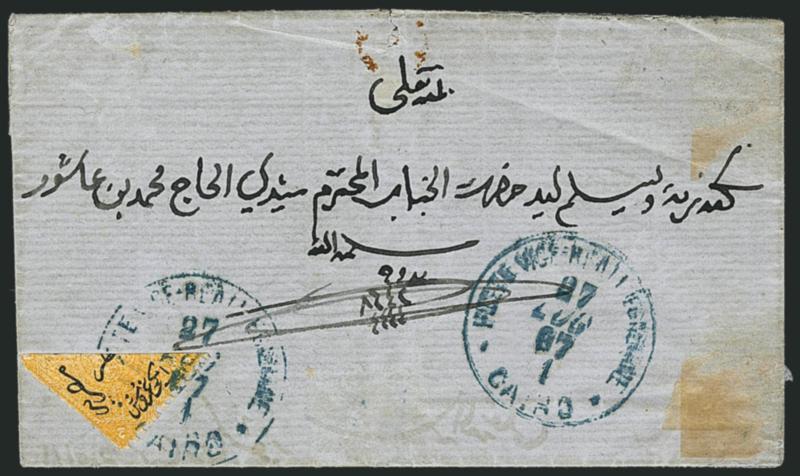 بمنه تعلى
سكندرية وليسلم ليد حضرت الجناب المحترم سيدي الحاج محمد بن عاشور
سلمه الله
بدوح
٨٦٤٢
POSTE VICE-REALI EGIZIANE
27
LUG
67
1
CAIRO
POSTE VICE-REALI EGIZIANE
27
67
1
CAIRO